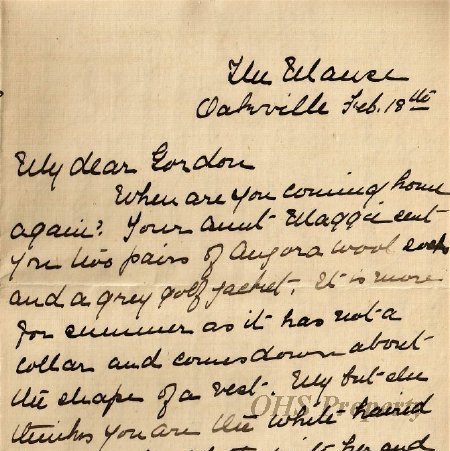 The Manse
Oakville Feb. 18th
My dear Gordon
When are you coming home
again? Your aunt Maggie sent
you two pairs of Angora wool socks
and a grey golf jacket. It is more
for summer as it has not a
collar and comes down about
the shape of a vest. My but she
OHS Property
thinks you are the white haired
to her and